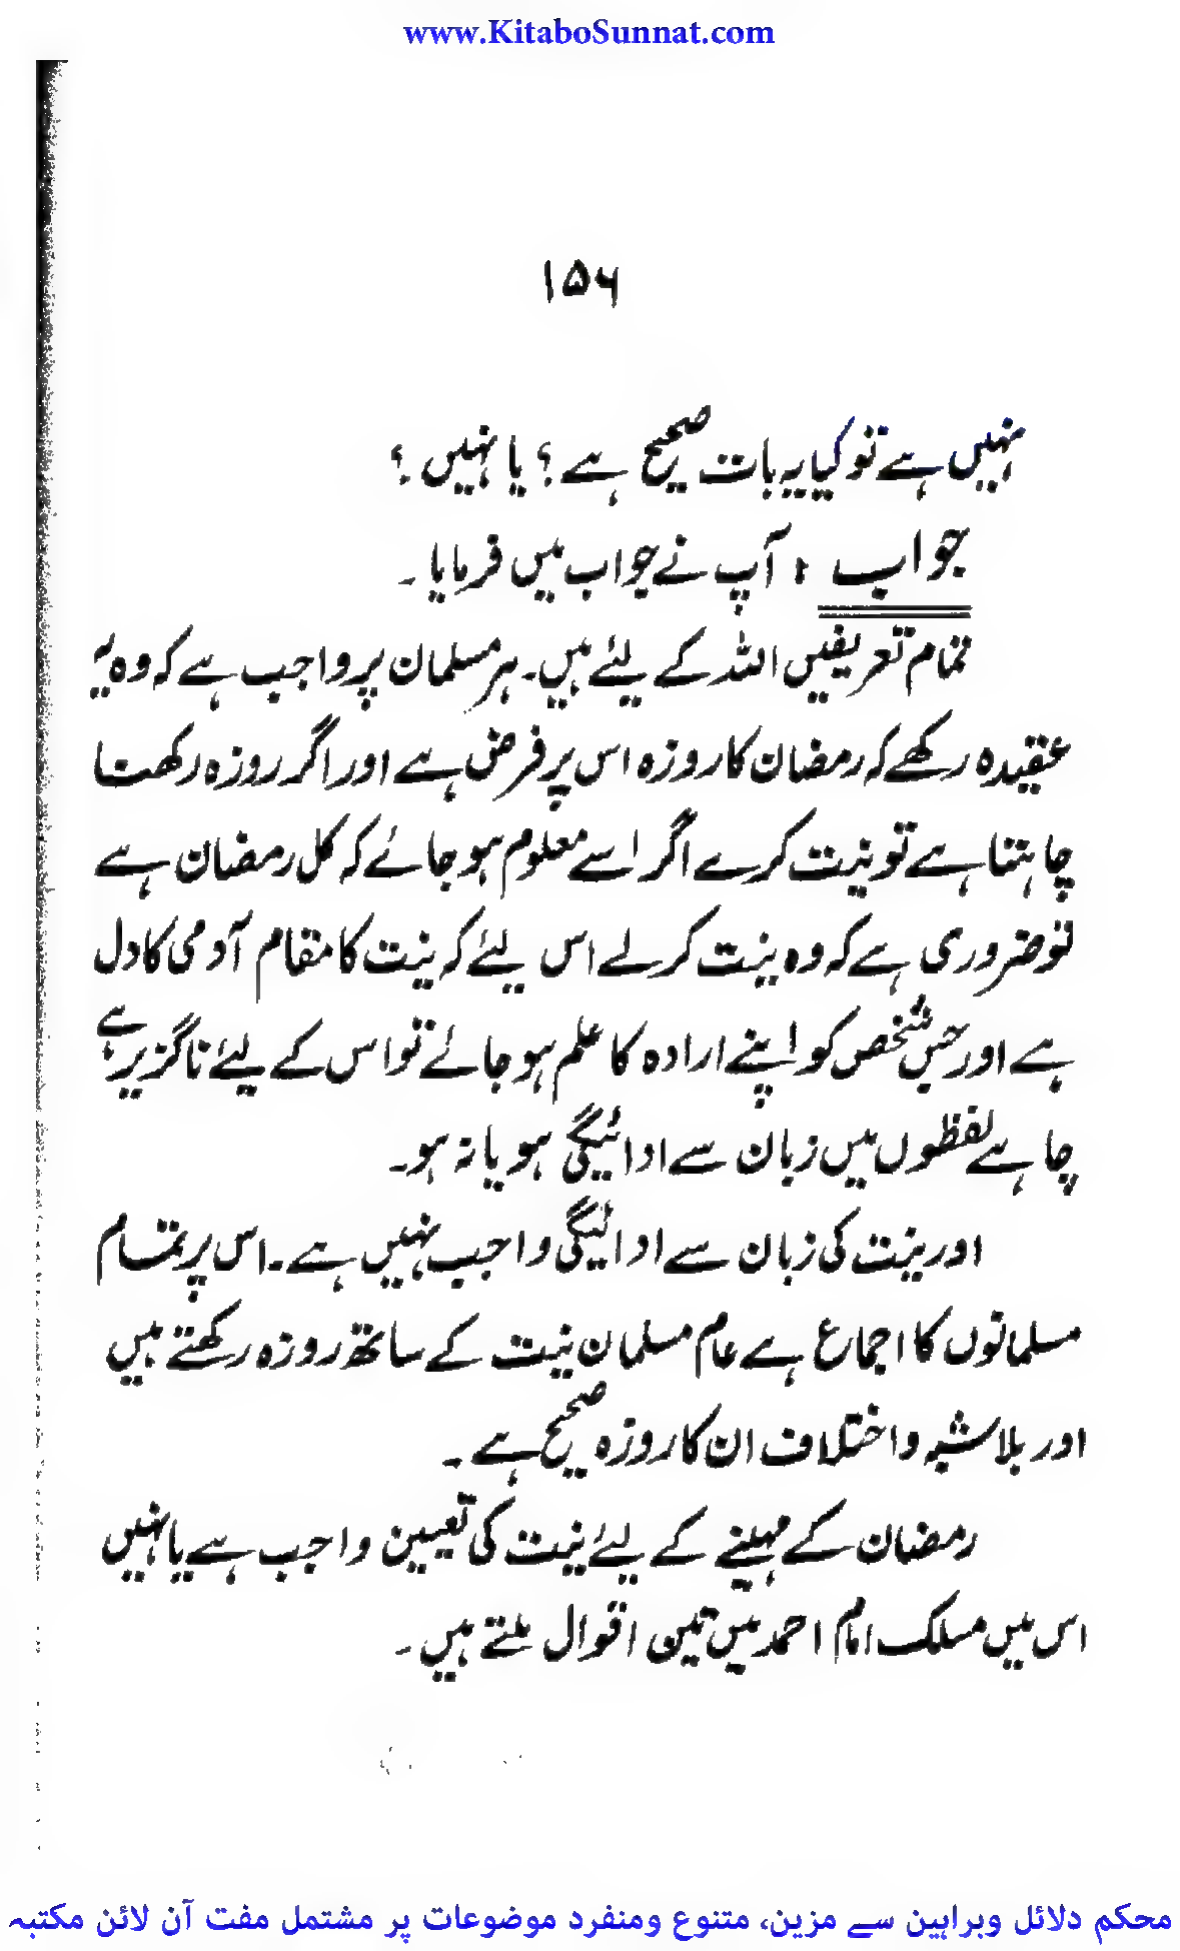 www.KitaboSunnat.com
۱۵۶
نہیں ہے تو کیا یہ بات صحیح ہے ؟ یا نہیں ؟
جواب : آپ نے جواب میں فرمایا ۔
تمام تعریفیں اللہ کے لیئے ہیں۔ ہر مسلمان پر واجب ہے کہ وہ یہ
عقیدہ رکھے کہ رمضان کا روزہ اس پر فرض ہے اور اگر روزہ رکھنا
چاہتا ہے تو نیت کرے اگر اسے معلوم ہو جائے کہ کل رمضان ہے
تو ضروری ہے کہ وہ نیت کرلے اس لیئے کہ نیت کا مقام آدمی کا دل
ہے اور جس شخص کو اپنے ارادہ کا علم ہو جائے تو اس کے لیئے ناگزیر ہے
چاہے لفظوں میں زبان سے ادائیگی ہو یا نہ ہو۔
اور نیت کی زبان سے ادائیگی واجب نہیں ہے۔ اس پر تمام
مسلمانوں کا اجماع ہے عام مسلمان نیت کے ساتھ روزہ رکھتے ہیں
اور بلا شبہ و اختلاف ان کا روزہ صحیح ہے ۔
رمضان کے مہینے کے لیئے نیت کی تعیین واجب ہے یا نہیں
اس میں مسلک امام احمد میں تین اقوال ملتے ہیں ۔
محکم دلائل وبراہین سے مزین، متنوع ومنفرد موضوعات پر مشتمل مفت آن لائن مکتبہ